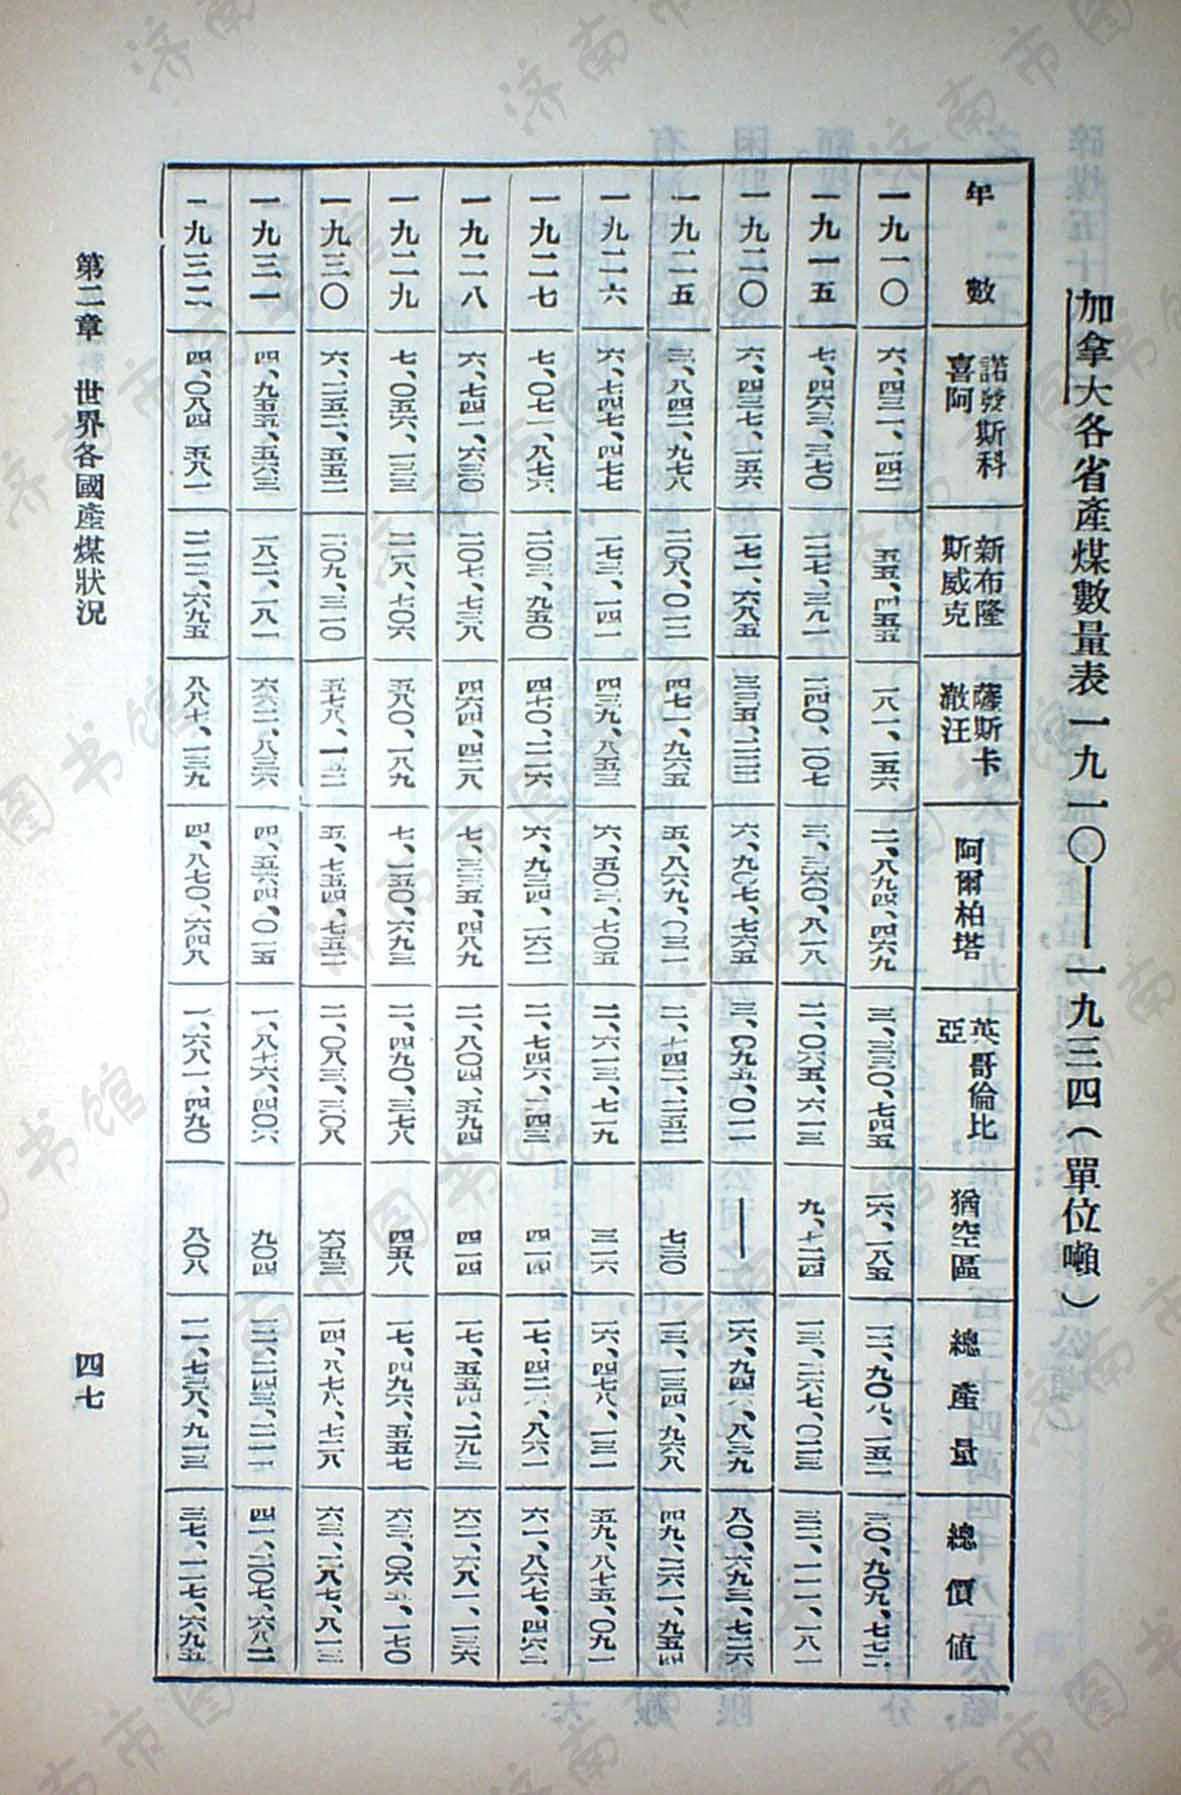 加拿大各省產煤數量表一九一〇——一九三四(單位噸)
年數 諾發斯科喜阿 新布隆斯威克 薩斯卡澈汪 阿爾柏塔 英哥倫比亞 猶空區 總產量 總價值
一九一〇 六、四三一、一四二 五五、四五五 一八一、一五六 二、八九四、四六九 三、三三〇、七四五 一六、一八五 一二、九〇九、一五二 三〇、九〇九、七七二
一九一五 七、四六三、三七〇 一二七、三九一 二四〇、一〇七 三、三六〇、八一八 二、〇六五、六一三 九、七二四 一三、二六七、〇二三 三二、一一一、一八一
一九二〇 六、四三七、一五六 一七一、六八五 三三五、二二二 六、九〇七、七六五 三、〇九五、〇一一 —— 一六、九四六、八三九 八〇、六九三、七二六
一九二五 三、八四二、九七八 二〇八、〇一二 四七一、九六五 五、八六九、〇三一 二、七四二、二五二 七三〇 一三、一三四、九六八 四九、二六一、九五四
一九二六 六、七四七、四七七 一七三、一四一 四三九、八五三 六、五〇三、七〇五 二、六一三、七一九 三一六 一六、四七八、一三一 五九、八七五、〇九一
一九二七 七、〇七一、八七六 二〇三、九五〇 四七〇、二一六 六、九三四、一六二 二、七四六、二四三 四一四 一七、四二六、八六一 六一、八六七、四六二
一九二八 六、七四一、六三〇 二〇七、七三八 四六四、四二八 七、三三五、四八九 二、八〇四、五九四 四一四 一七、五五四、二九三 六二、六八一、一三六
一九二九 七、〇五六、一三三 二一八、七〇六 五八〇、一八九 七、一五〇、六九三 二、四九〇、三七八 四五八 一七、四九六、五五七 六三、〇六五、一七〇
一九三〇 六、二五二、五五二 二〇九、三一〇 五七八、一五二 五、七五四、七五二 二、〇八三、三〇八 六五三 一四、八七八、七二八 六三、二八七、八一三
一九三一 四、九五五、五六三 一八二、一八一 六六二、八三六 四、五六四、〇一五 一、八七六、四〇六 九〇四 一二、二四三、二一一 四一、二〇七、六八二
一九三二 四、〇八四、五八一 二一二、六九五 八八七、一三九 四、八七〇、六四八 一、六八一、四九〇 八〇八 一一、七三八、九一三 三七、一一七、六九五
第二章 世界各國產煤狀況 四七
济南市图书馆